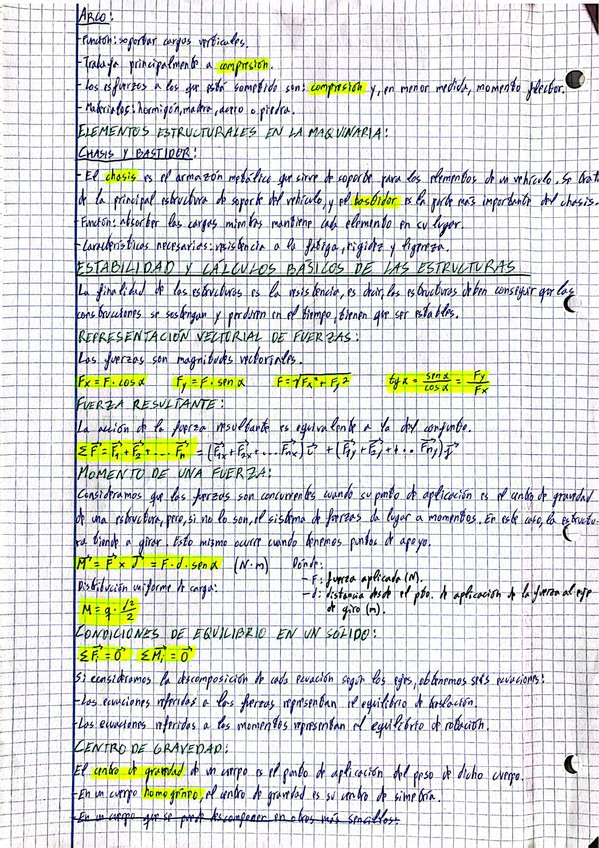 ARCO:
-Función: soportar cargas verticales.
-Trabaja principalmente a compresión.
-Los esfuerzos a los que está sometido son: compresión y, en menor medida, momento flector.
-Materiales: hormigón, madera, acero o piedra.
ELEMENTOS ESTRUCTURALES EN LA MAQUINARIA:
CHASIS Y BASTIDOR:
-El chasis es el armazón metálico que sirve de soporte para los elementos de un vehículo. Se trata
de la principal estructura de soporte del vehículo, y el bastidor es la parte más importante del chasis.
-Función: absorber las cargas mientras mantiene cada elemento en su lugar.
-Características necesarias: resistencia a la fatiga, rigidez y ligereza.
ESTABILIDAD Y CÁLCULOS BÁSICOS DE LAS ESTRUCTURAS
La finalidad de las estructuras es la resistencia, es decir, las estructuras deben conseguir que las
construcciones se sostengan y perduren en el tiempo, tienen que ser estables.
REPRESENTACIÓN VECTORIAL DE FUERZAS:
Las fuerzas son magnitudes vectoriales.
Fx = F · cos α Fy = F · sen α F = √Fx² + Fy² tg α = sen α / cos α = Fy / Fx
FUERZA RESULTANTE:
La acción de la fuerza resultante es equivalente a la del conjunto.
ΣF⃗ = F⃗1 + F⃗2 + ... F⃗n = (F⃗1x + F⃗2x + ... F⃗nx) i⃗ + (F⃗1y + F⃗2y + ... F⃗ny) j⃗
MOMENTO DE UNA FUERZA:
Consideramos que las fuerzas son concurrentes cuando su punto de aplicación es el centro de gravedad
de una estructura, pero, si no lo son, el sistema de fuerzas da lugar a momentos. En este caso, la estructu-
ra tiende a girar. Esto mismo ocurre cuando tenemos puntos de apoyo.
M⃗ = F⃗ × d⃗ = F · d · sen α (N·m) Donde:
-F: fuerza aplicada (N).
-d: distancia desde el pto. de aplicación de la fuerza al eje
de giro (m).
Distribución uniforme de carga:
M = q · l²/2
CONDICIONES DE EQUILIBRIO EN UN SÓLIDO:
ΣF⃗i = 0⃗ ΣM⃗i = 0⃗
Si consideramos la descomposición de cada ecuación según los ejes, obtenemos seis ecuaciones:
-Las ecuaciones referidas a las fuerzas representan el equilibrio de traslación.
-Las ecuaciones referidas a los momentos representan el equilibrio de rotación.
CENTRO DE GRAVEDAD:
El centro de gravedad de un cuerpo es el punto de aplicación del peso de dicho cuerpo.
-En un cuerpo homogéneo, el centro de gravedad es su centro de simetría.
-En un cuerpo que se puede descomponer en otros más sencillos: